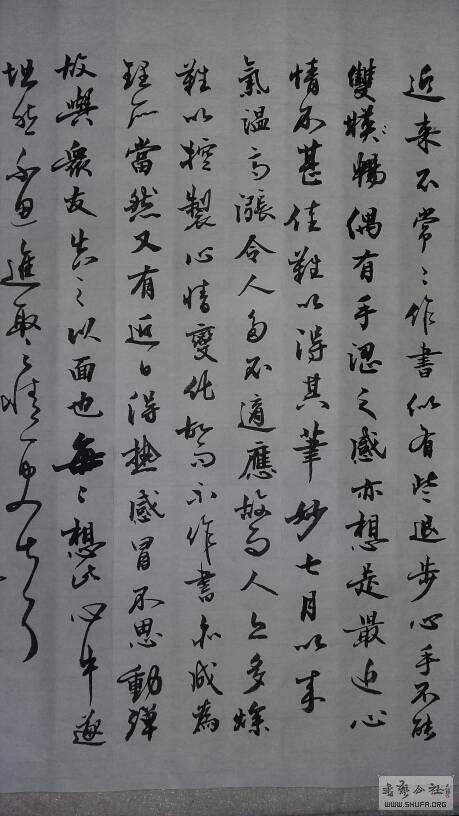 近来不常々作書似有些退步心手不能
雙暢偶有手澀之感亦想是最近心
情不甚佳難以得其筆妙七月以来
氣溫高漲令人多不適應故而人亦多燥
難以控製心情變化故而不作書亦成為
理所當然又有近日得熱感冒不思動弹
故與衆友告之以面也每々想此心中遂
坦然不思進取之情
WWW.SHUFA.ORG